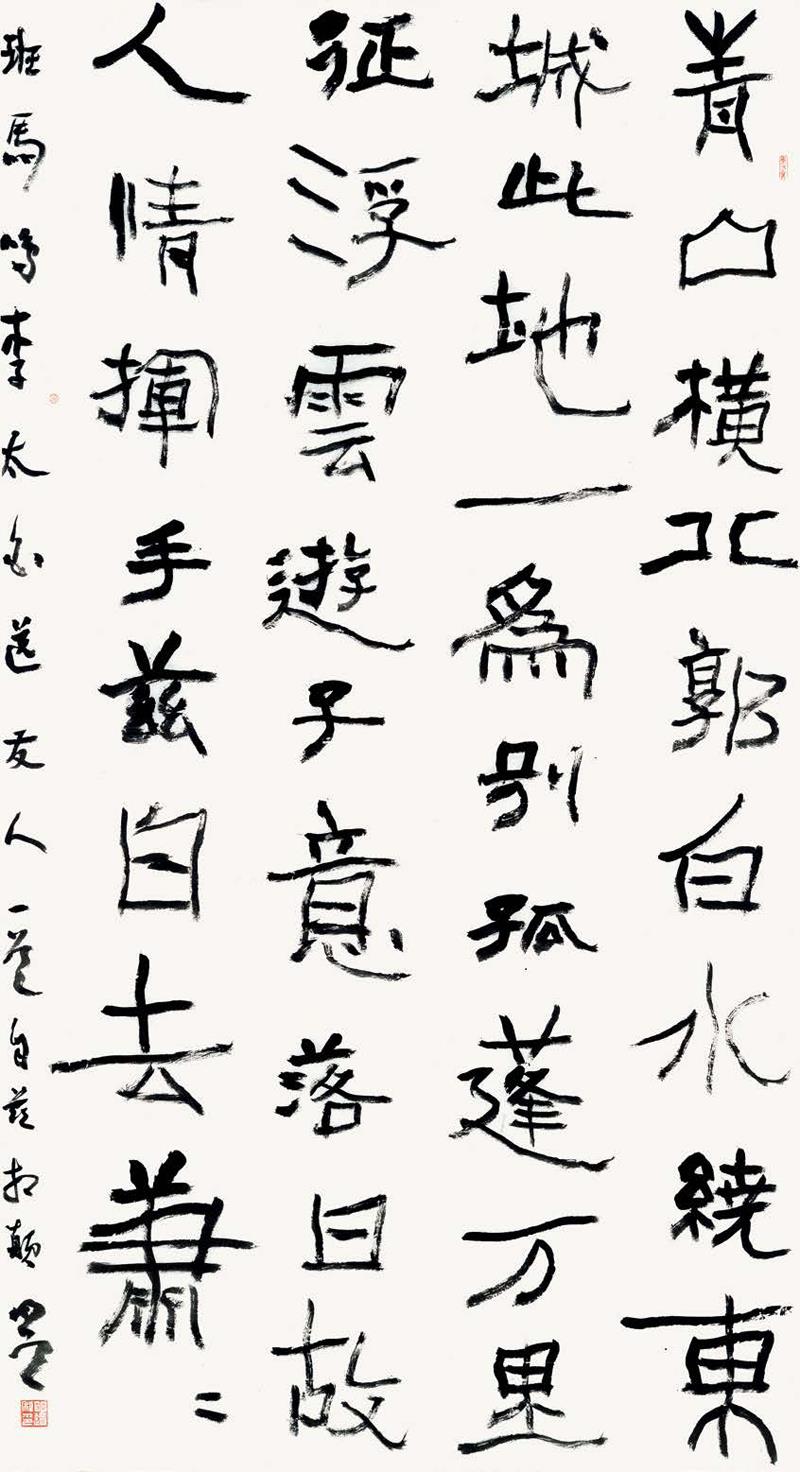 青山橫北郭白水繞東
城此地一為別孤蓬万里
征浮雲遊子意落日故
人情揮手茲自去蕭二
班馬鳴李太白送友人一登自茲